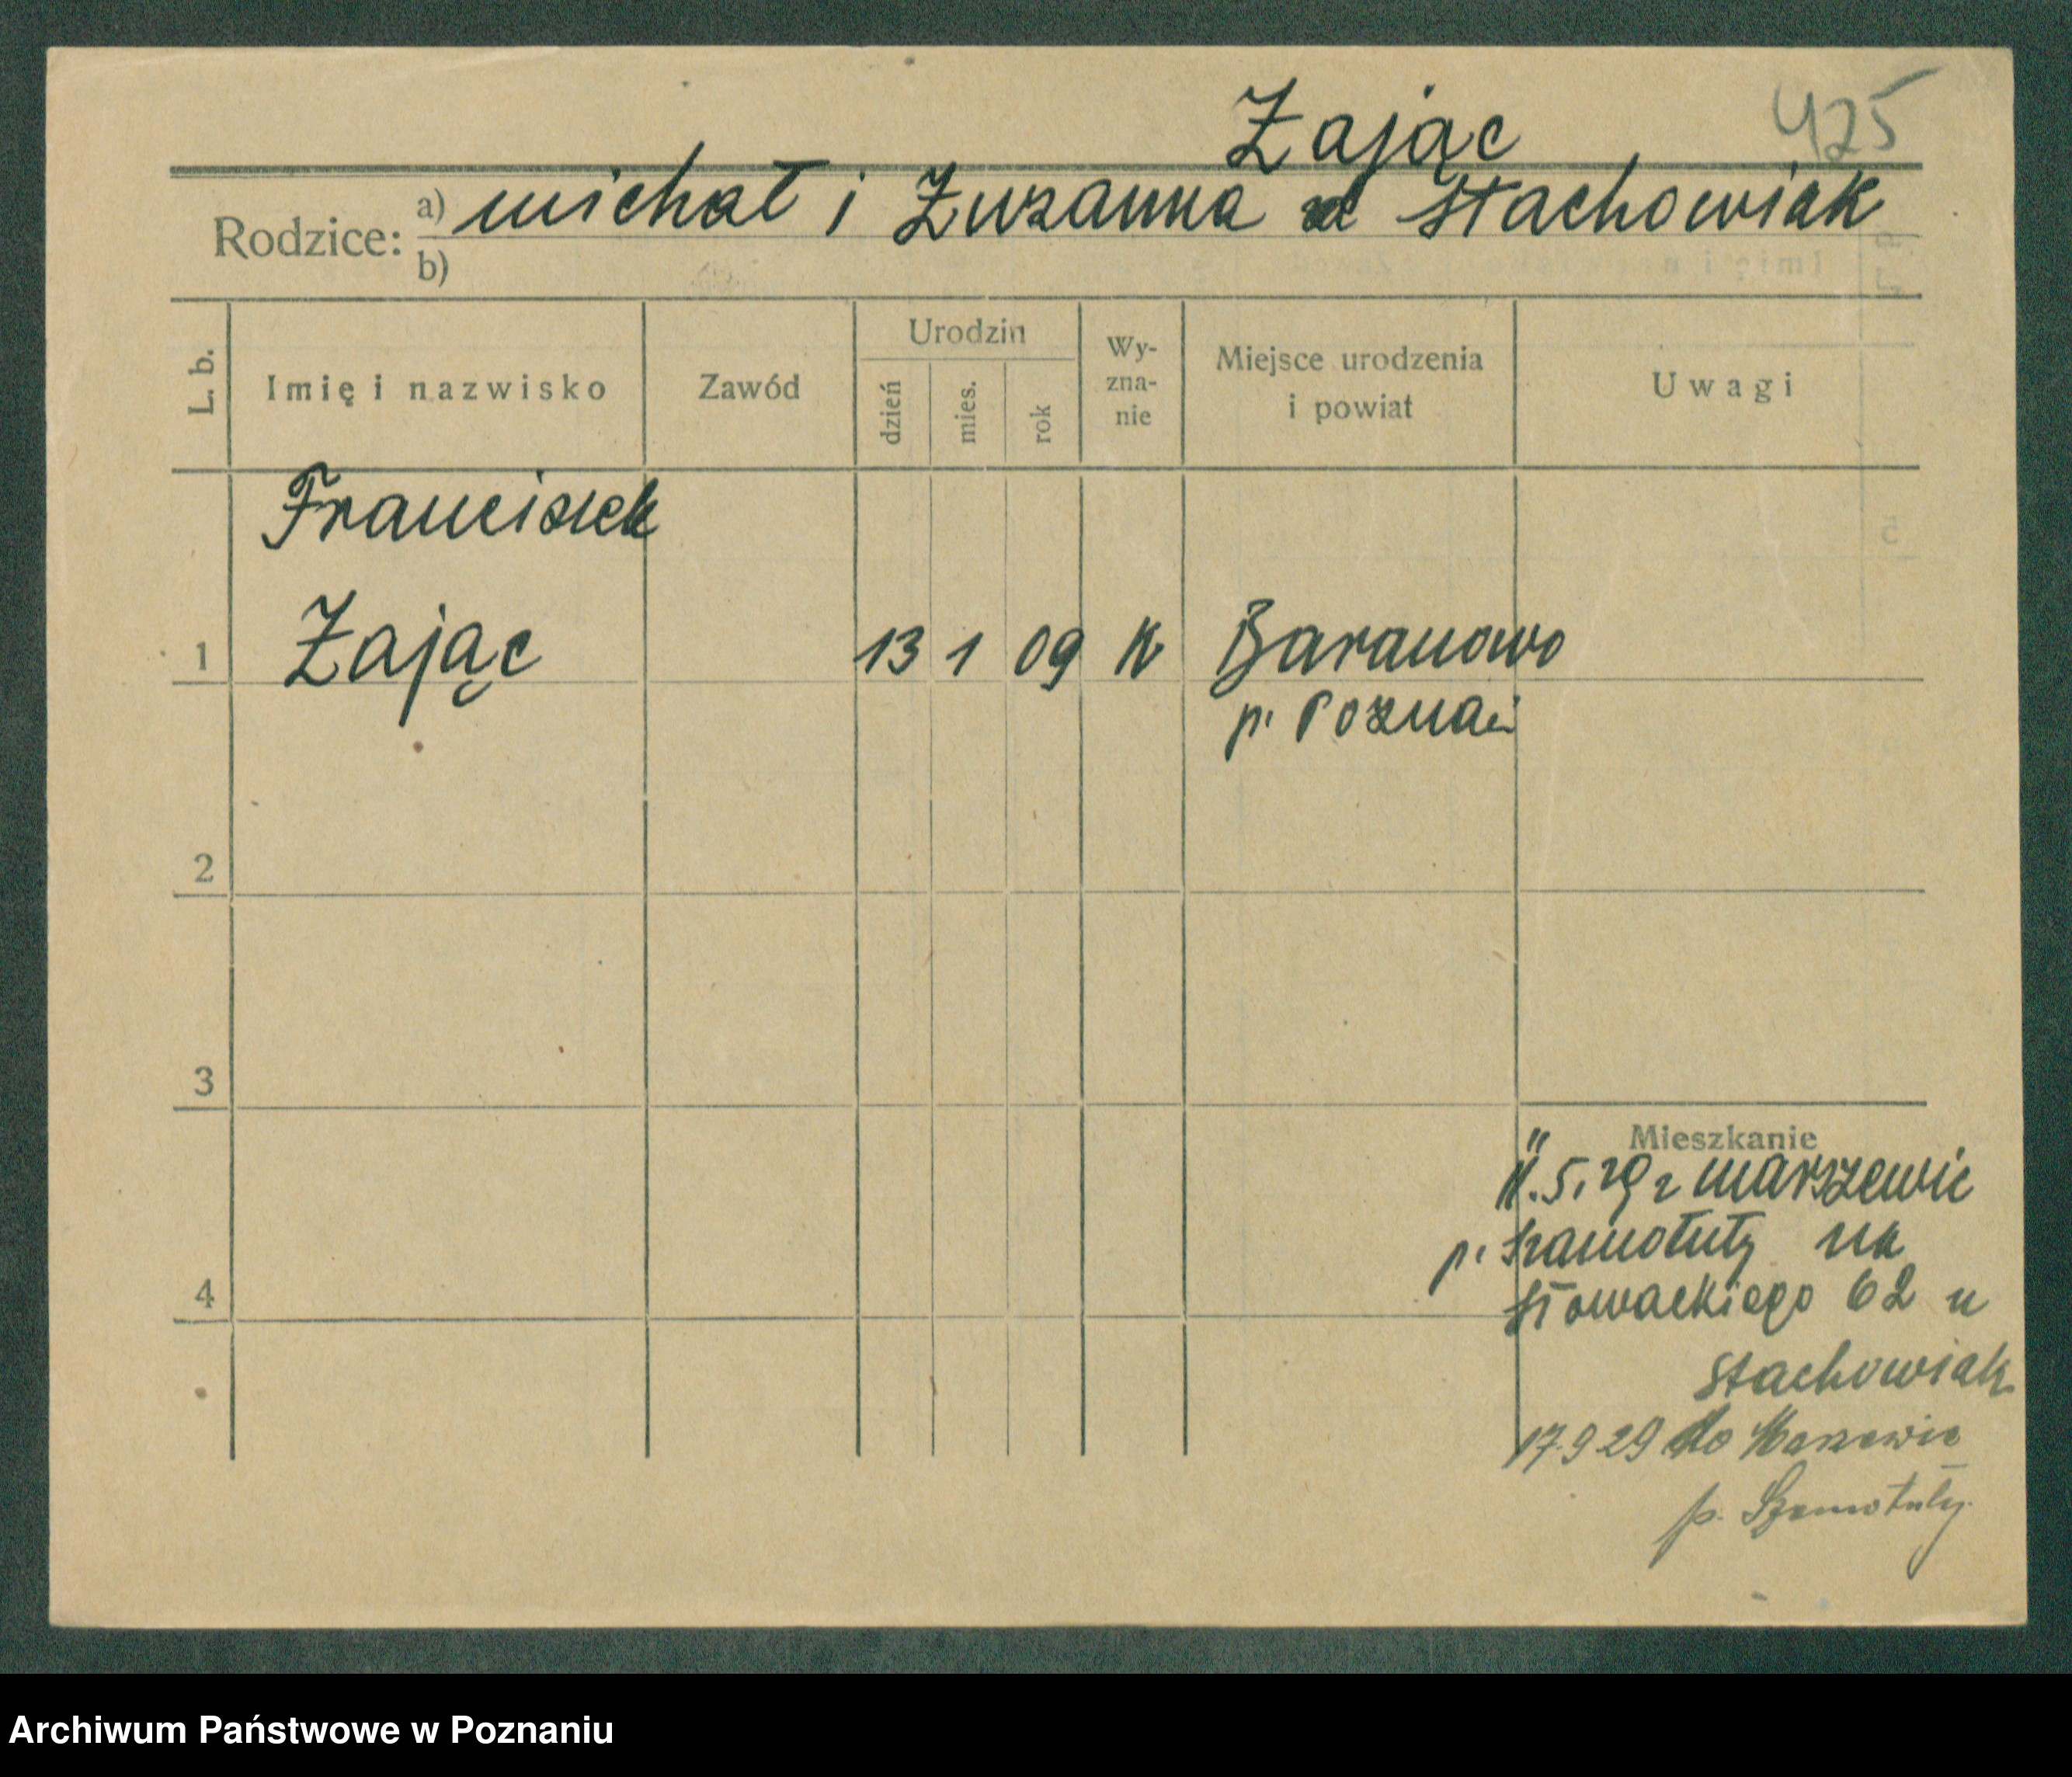 Zając 425
Rodzice: a) Michał i Zuzanna zd Stachowiak
b)
L. b. Imię i nazwisko Zawód Urodzin dzień mies. rok Wy-zna-nie Miejsce urodzenia i powiat Uwagi
Franciszek
1 Zając 13 1 09 K Baranowo
p. Poznań
2
3
Mieszkanie
5. 29 z Marszewic
p. Szamotuły na
4 Słowackiego 62 u
Stachowiak
17.9.29 do Marszewic
p. Szamotuły.
Archiwum Państwowe w Poznaniu